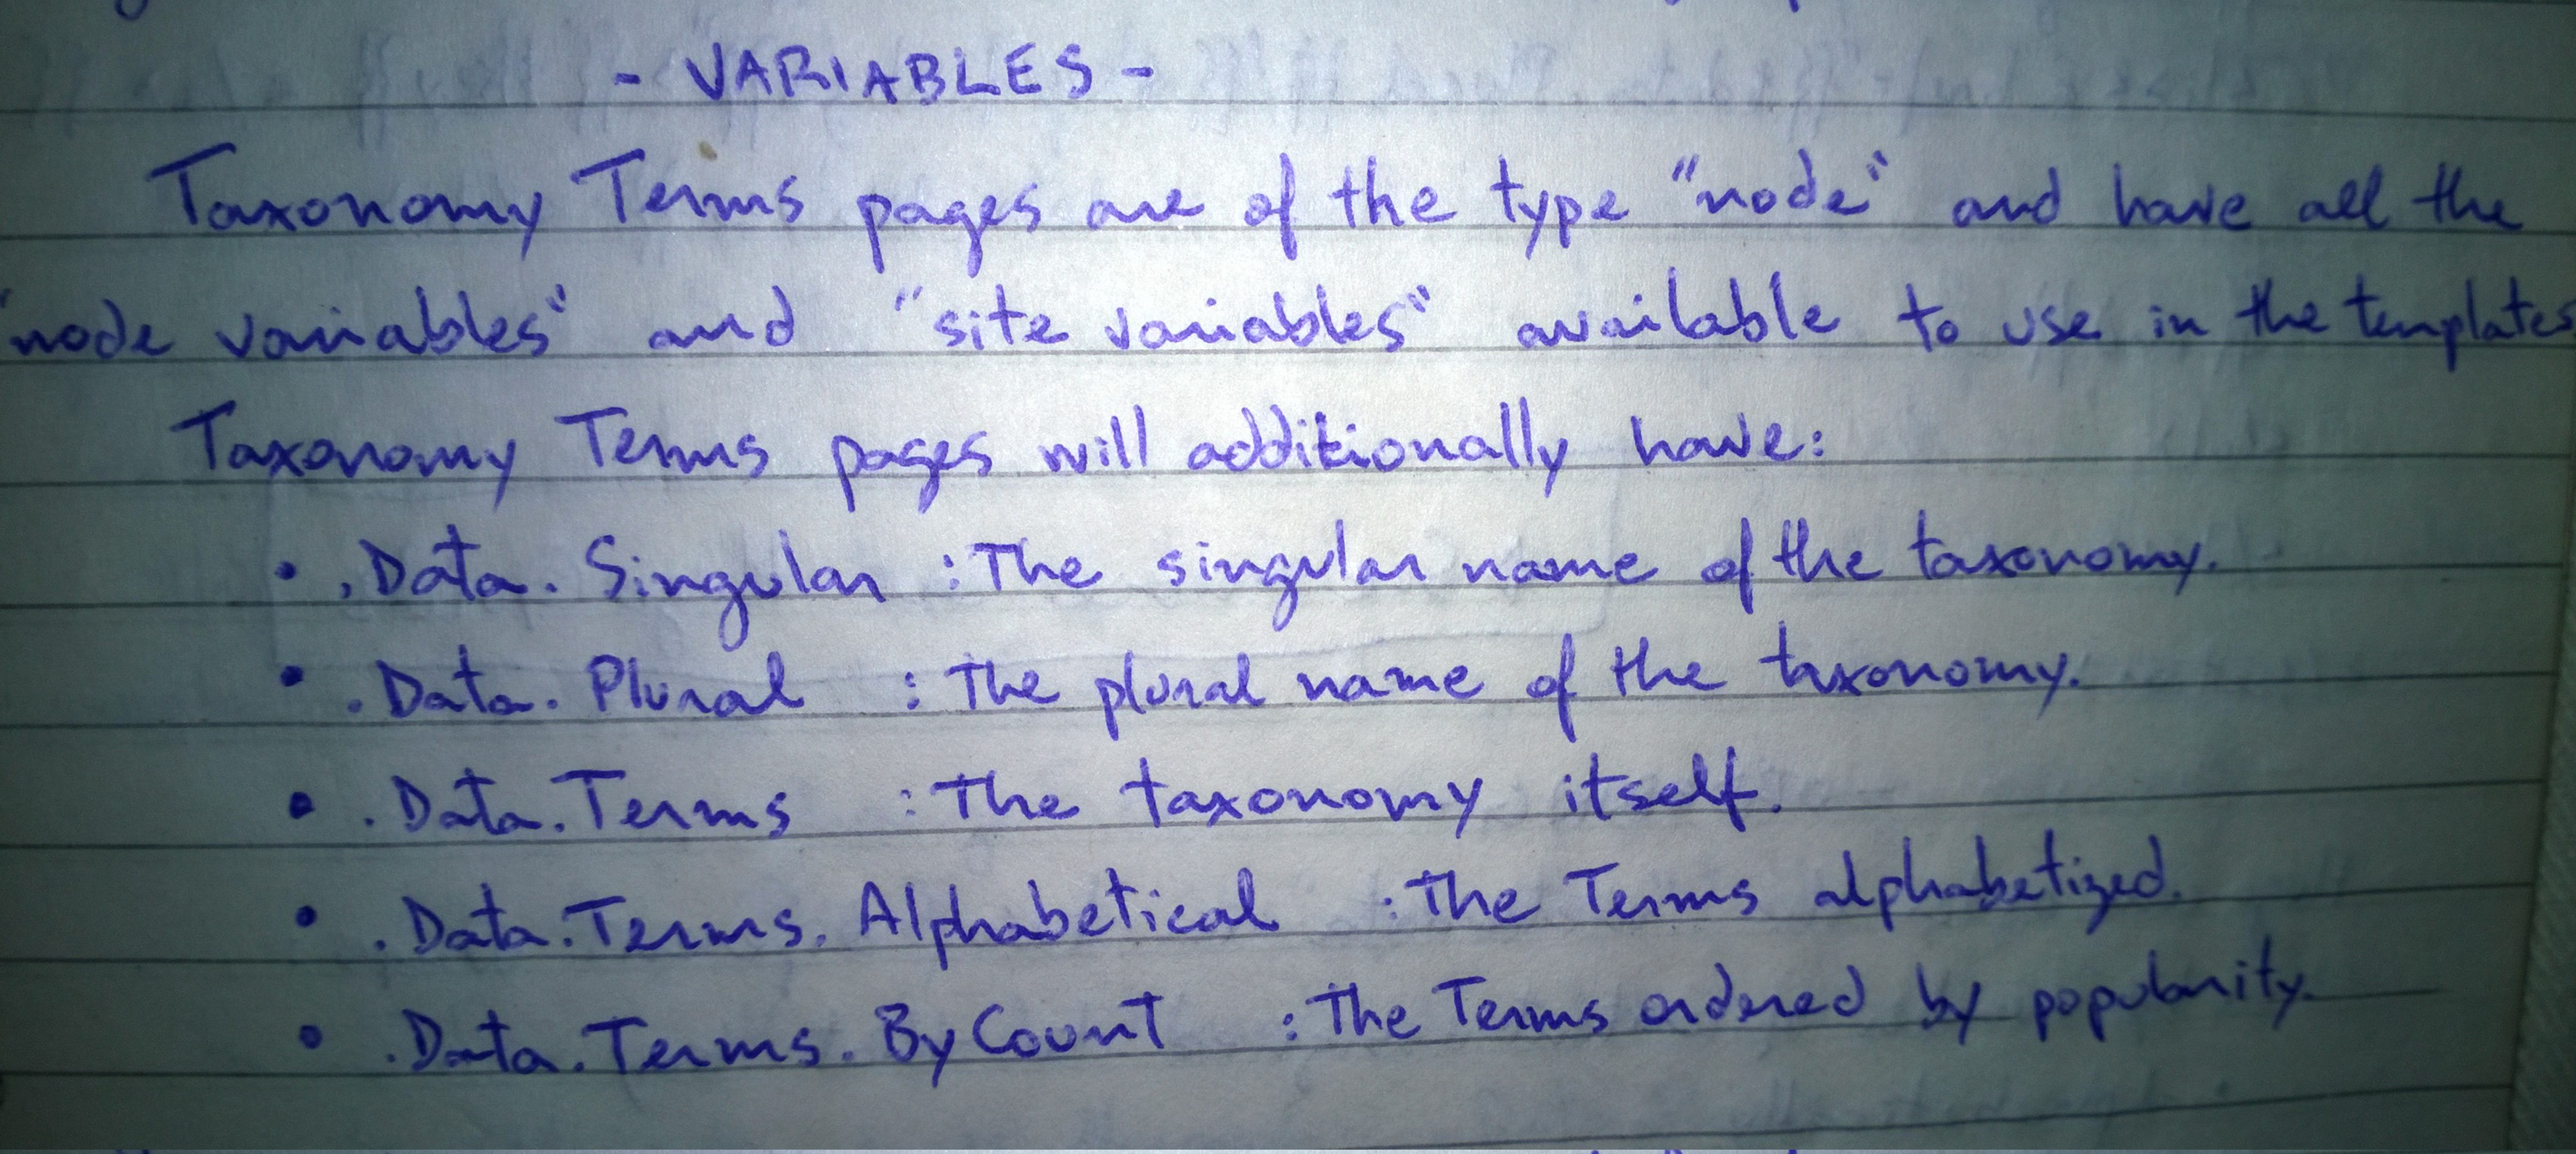 - VARIABLES -
Taxonomy Terms pages are of the type "node" and have all the
"node variables" and "site variables" available to use in the templates
Taxonomy Terms pages will additionally have:
• .Data.Singular : The singular name of the taxonomy.
• .Data.Plural : The plural name of the taxonomy.
• .Data.Terms : The taxonomy itself.
• .Data.Terms.Alphabetical : The Terms alphabetized.
• .Data.Terms.ByCount : The Terms ordered by popularity.